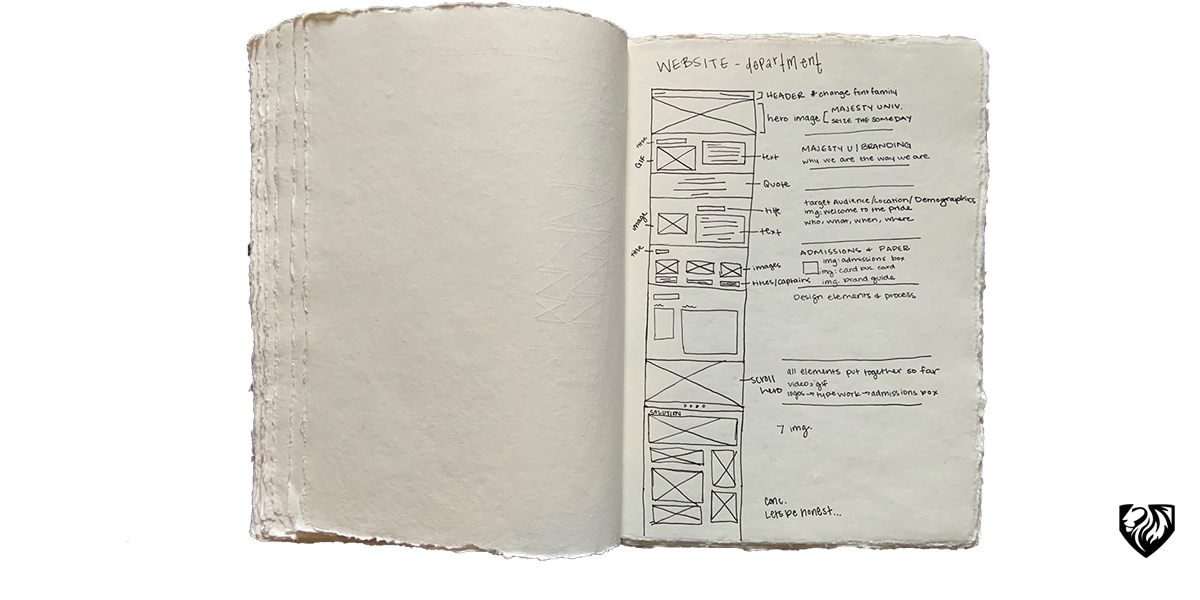 WEBSITE - department
HEADER * change font family
hero image
MAJESTY UNIV.
SEIZE THE SOMEDAY
GIF
text
MAJESTY U | BRANDING
why we are the way we are
Quote
image
title
text
target Audience/Location/Demographics
img: welcome to the pride
who, what, when, where
title
images
titles/captains
ADMISSIONS & PAPER
img: admissions box
img: card bus. card
img. brand guide
Design elements & process
scroll
hero
all elements put together so far
video = gif
logos → type work → admissions box
SOLUTION
7 img.
Conc.
Lets be honest...